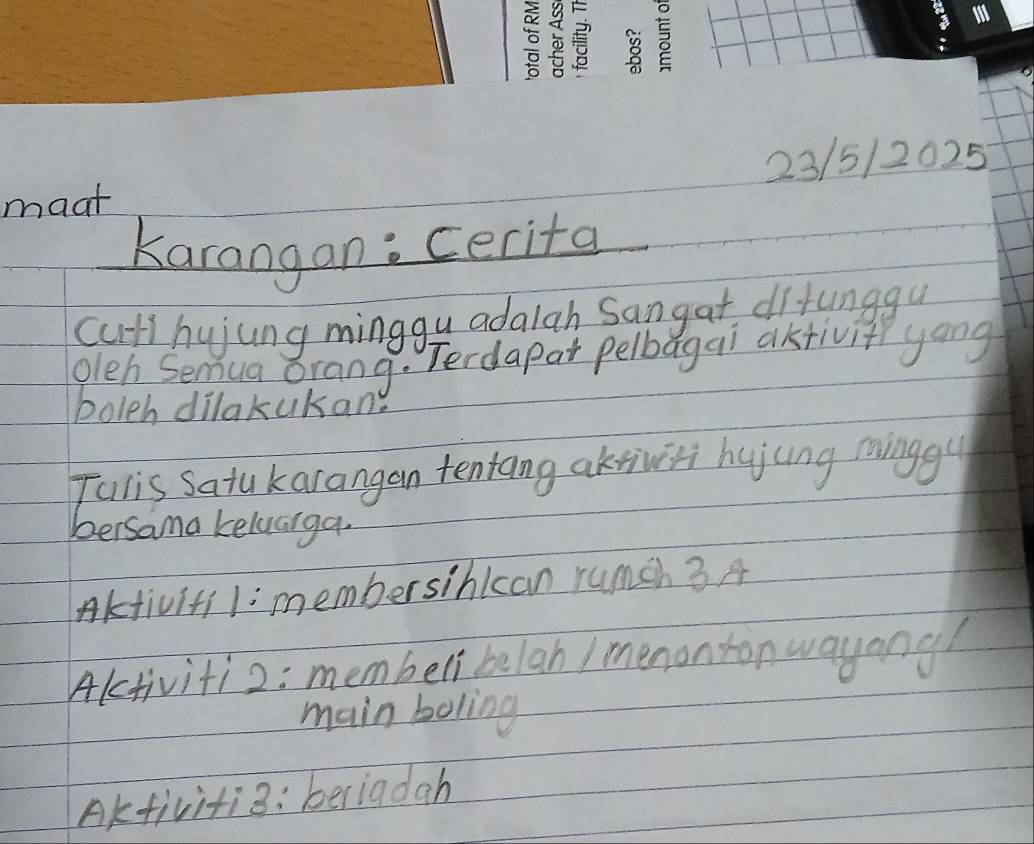 otal of RM
acher Ass
facility. Th
ebos?
amount of
23/5/2025
maat
Karangan: Cerita
Cuti hujung minggu adalah Sangat ditunggu
oleh Semua orang. Terdapat pelbagai aktiviti yang
boleh dilakukan.
Tulis Satu karangan tentang aktiviti hujung minggu
bersama keluarga.
Aktiviti 1: membersihkan rumah 3A
Aktiviti 2: membeli belah / menonton wayang /
main boling
Aktiviti 3: beriadah